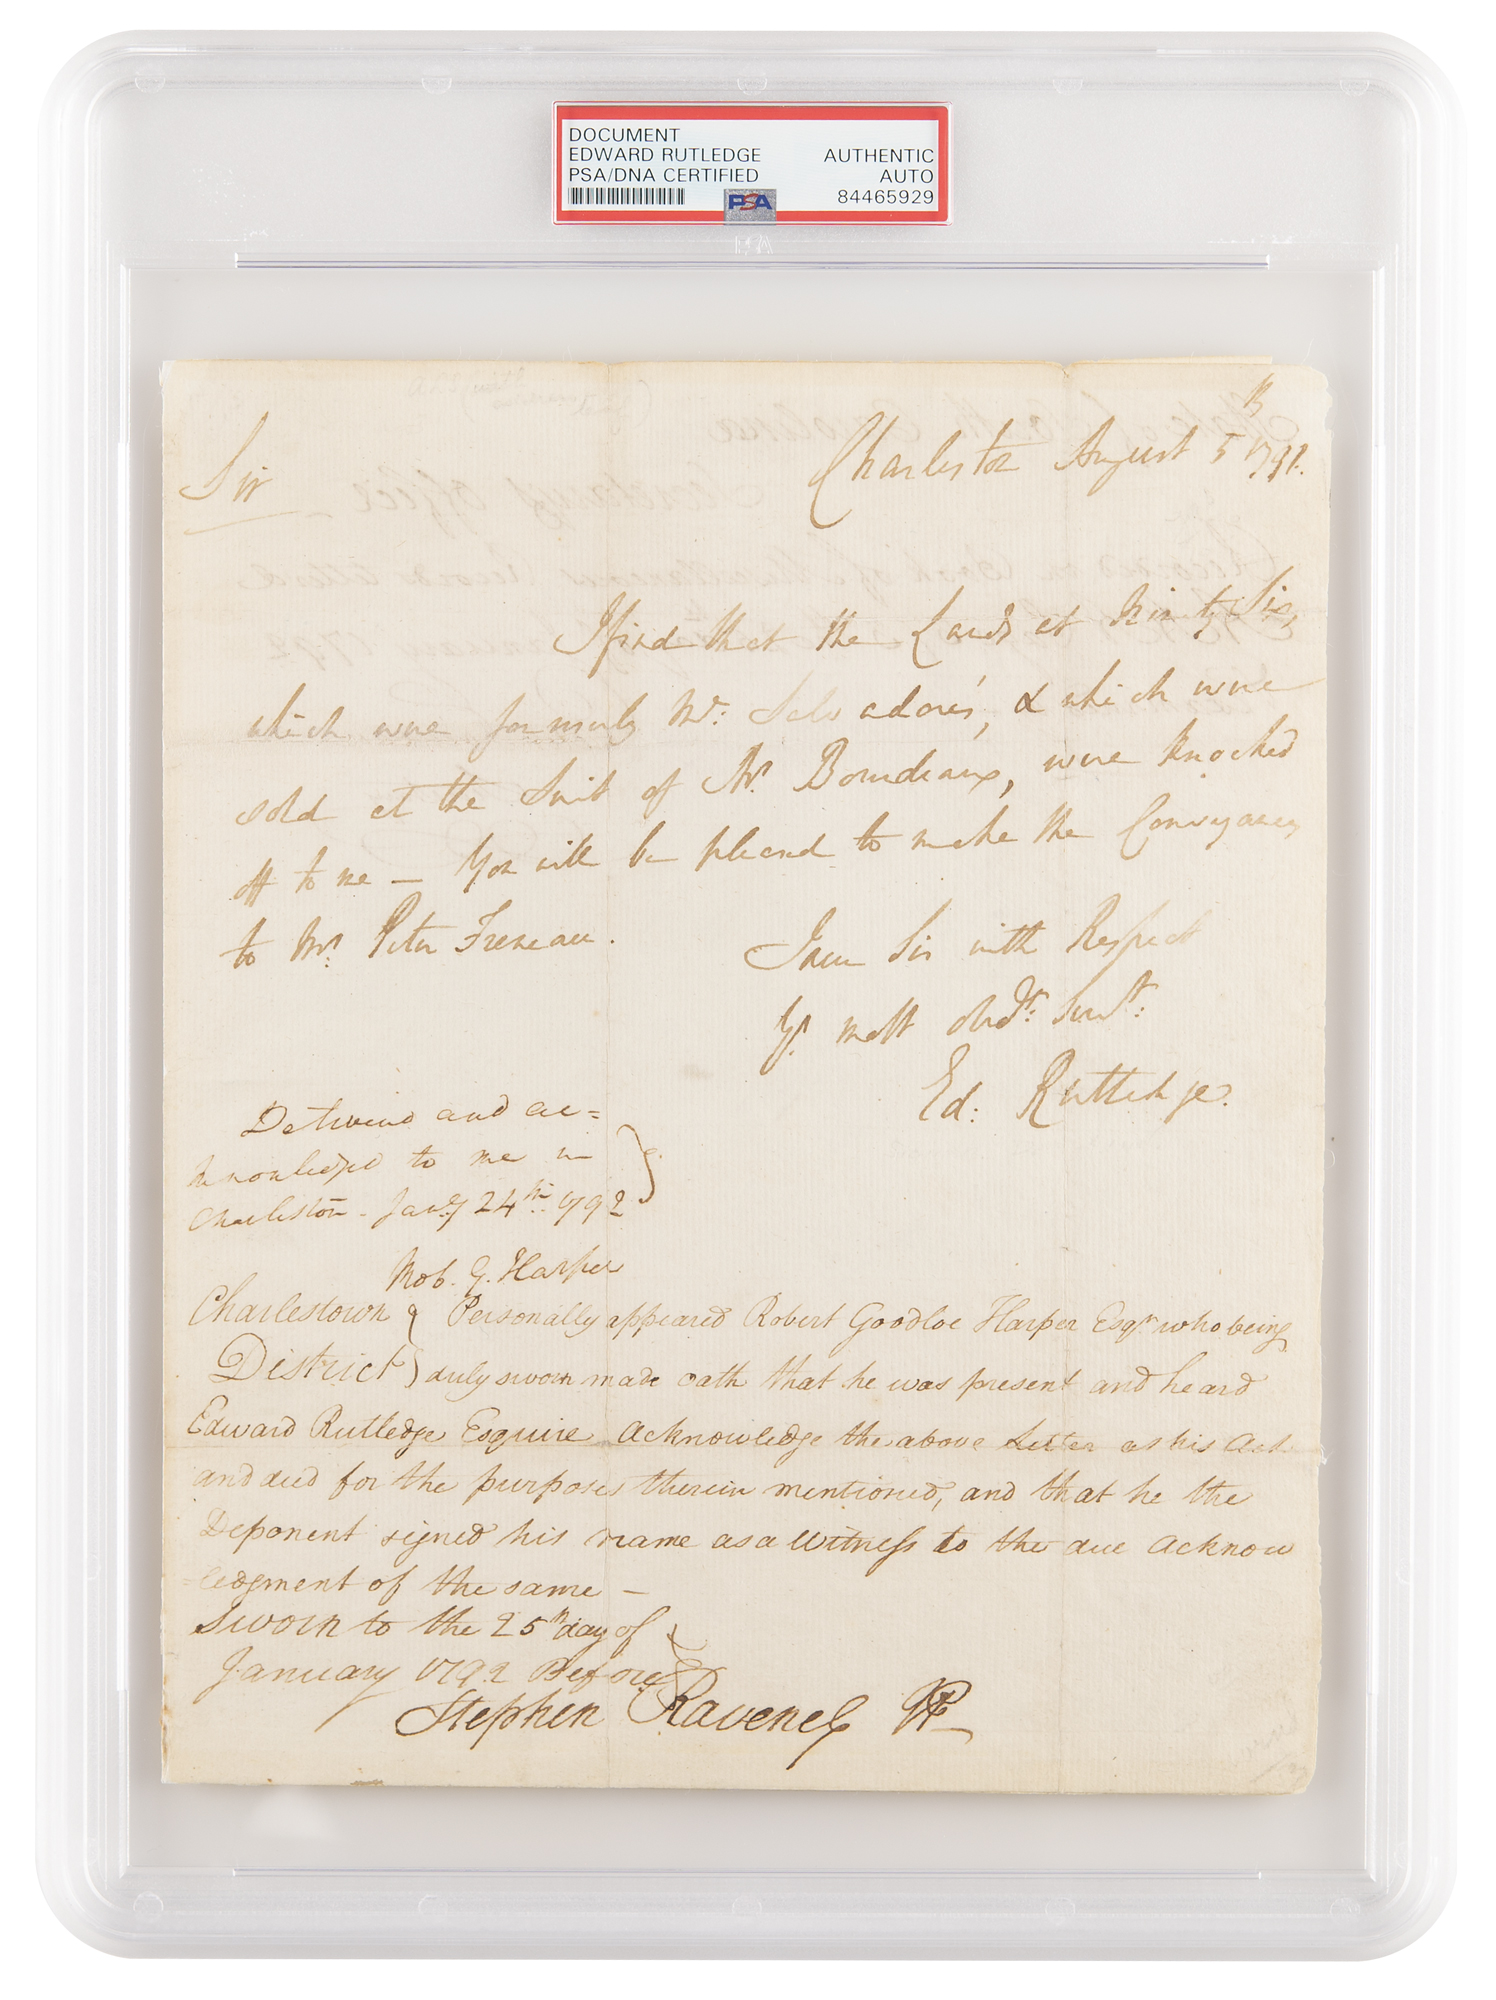 DOCUMENT
EDWARD RUTLEDGE
PSA/DNA CERTIFIED
AUTHENTIC
AUTO
84465929
PSA
Charleston August 5th 1791.
Sir
I find that the Lands at Ninty Six,
which were formerly Mr: Salvadores, & which were
sold at the Suit of Mr. Bourdeaux, were knocked
off to me — You will be pleased to make the Conveyances
to Mr: Peter Freneau.
I am Sir with Respect
Yr. most obedt: Servt:
Ed: Rutledge.
Delivered and ac=
knowledged to me in
Charleston - Jany 24th 1792
Rob. G. Harper
Charlestown } Personally appeared Robert Goodloe Harper Esqr who being
District } duly sworn made oath that he was present and heard
Edward Rutledge Esquire Acknowledge the above Letter as his Act
and deed for the purposes therein mentioned, and that he the
Deponent signed his name as a Witness to the due Acknow
=ledgment of the same —
Sworn to the 25th day of
January 1792 Before
Stephen Ravenel JP